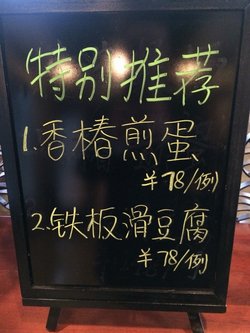 特别推荐
1.香椿煎蛋
¥78/例
2.铁板滑豆腐
¥78/例